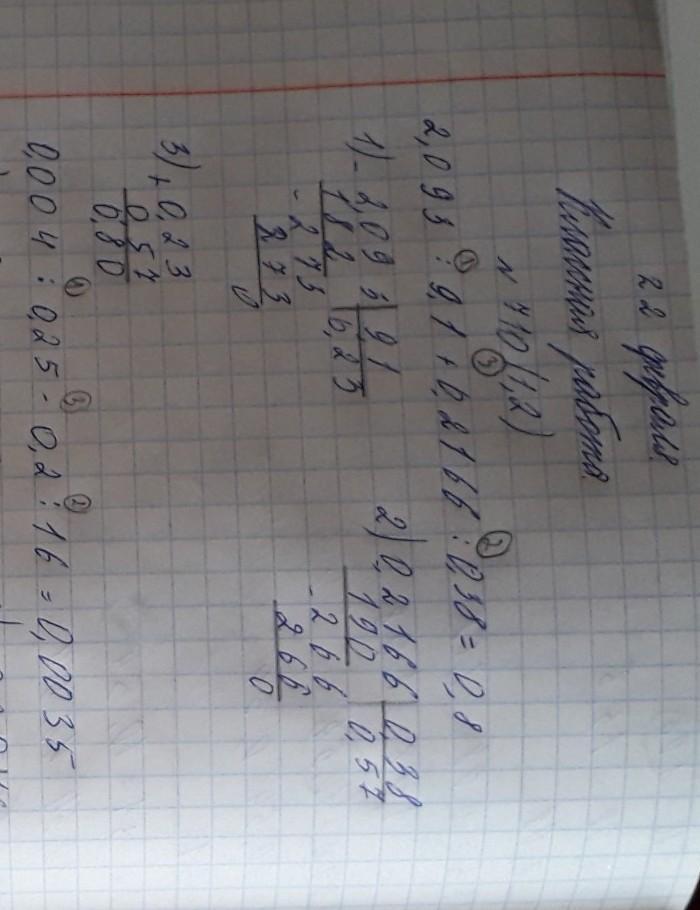 22 февраля.
Классная работа.
№ 710 (1,2)
2,093 : 9,1 + 0,2166 : 0,38 = 0,8
① ③ ②
1) - 2,093 | 9,1
182 0,23
- 273
273
0
2) 0,2166 | 0,38
190 0,57
- 266
266
0
3) + 0,23
0,57
0,80
① ③ ②
0,004 : 0,25 - 0,2 : 16 = 0,0035